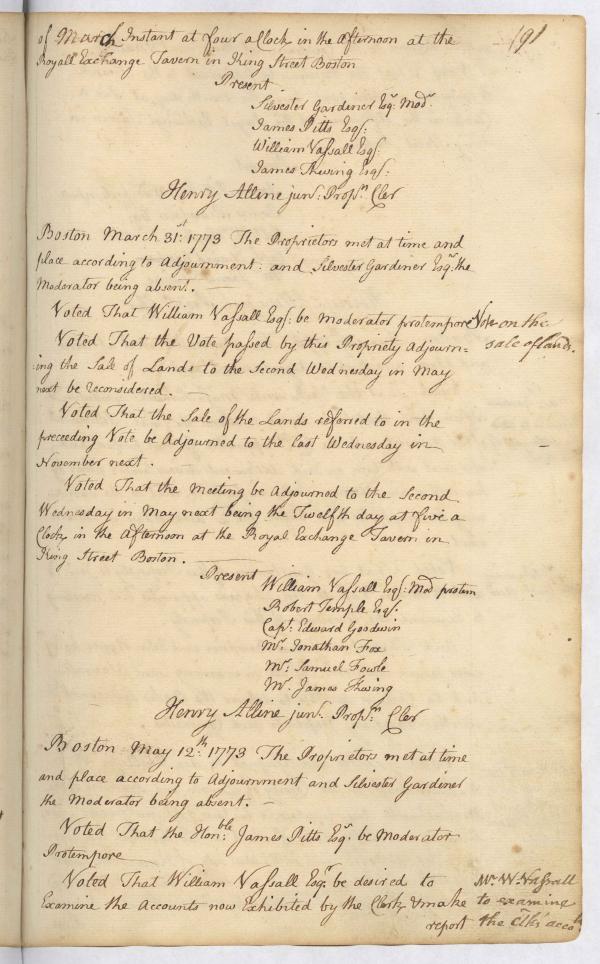 191
of March Instant at four a Clock in the Afternoon at the
Royall Exchange Tavern in King Street Boston
Present
Silvester Gardiner Esqr. Modr.
James Pitts Esqr:
William Vassall Esqr:
James Thwing Esqr:
Henry Alline junr: Propn. Cler
Boston March 31st: 1773 The Proprietors met at time and
place according to Adjournment: and Silvester Gardiner Esqr. the
Moderator being absent. —
Voted That William Vassall Esqr: be moderator protempore
Vote on the
sale of lands.
Voted That the Vote passed by this Propriety Adjourn=
:ing the Sale of Lands to the Second Wednesday in May
next be Reconsidered. —
Voted That the Sale of the Lands referred to in the
preceeding Vote be Adjourned to the last Wednesday in
November next. —
Voted That the meeting be Adjourned to the Second
Wednesday in May next being the Twelfth day at five a
Clock in the Afternoon at the Royal Exchange Tavern in
King Street Boston. —
Present
William Vassall Esqr: Mod protem
Robert Temple Esqr.
Capt. Edward Goodwin
Mr. Jonathan Fox
Mr. Samuel Fowle
Mr. James Thwing
Henry Alline junr. Propn: Cler
Boston May 12th: 1773 The Proprietors met at time
and place according to Adjournment and Silvester Gardiner
the Moderator being absent. —
Voted That the Honble: James Pitts Esqr. be Moderator
Protempore
Voted That William Vassall Esqr. be desired to
Examine the Accounts now Exhibited by the Clerk & make
report
Mr. W. Vassall
to examine
the Clks' accots